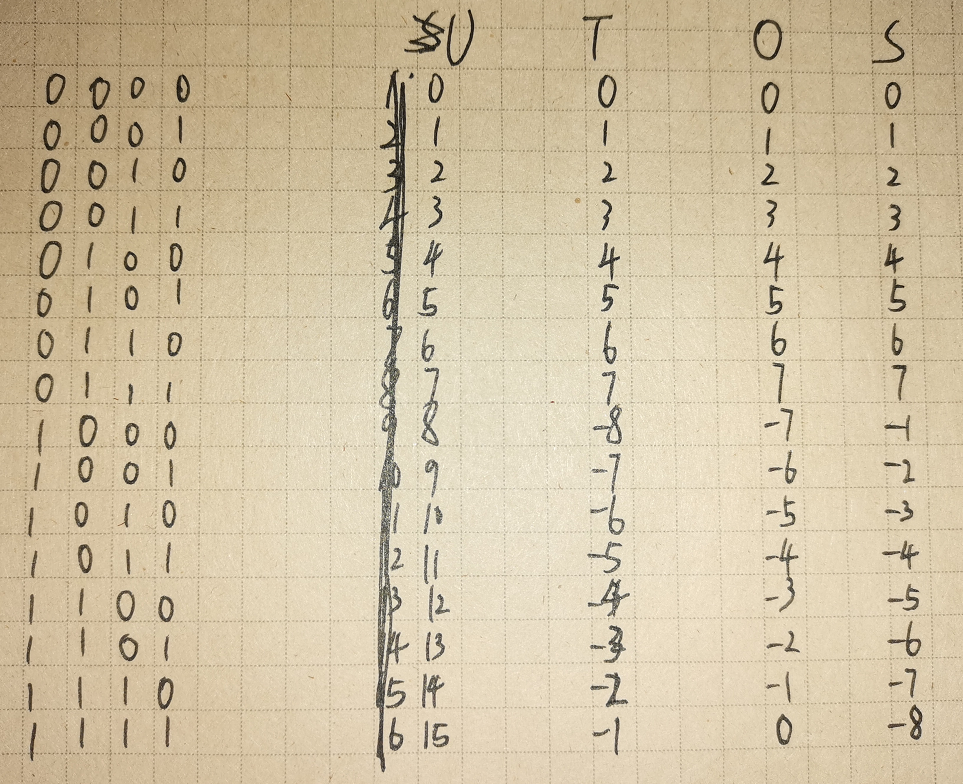 U T O S
0 0 0 0 0 0 0 0
0 0 0 1 1 1 1 1
0 0 1 0 2 2 2 2
0 0 1 1 3 3 3 3
0 1 0 0 4 4 4 4
0 1 0 1 5 5 5 5
0 1 1 0 6 6 6 6
0 1 1 1 7 7 7 7
1 0 0 0 8 -8 -7 -1
1 0 0 1 9 -7 -6 -2
1 0 1 0 10 -6 -5 -3
1 0 1 1 11 -5 -4 -4
1 1 0 0 12 -4 -3 -5
1 1 0 1 13 -3 -2 -6
1 1 1 0 14 -2 -1 -7
1 1 1 1 15 -1 0 -8